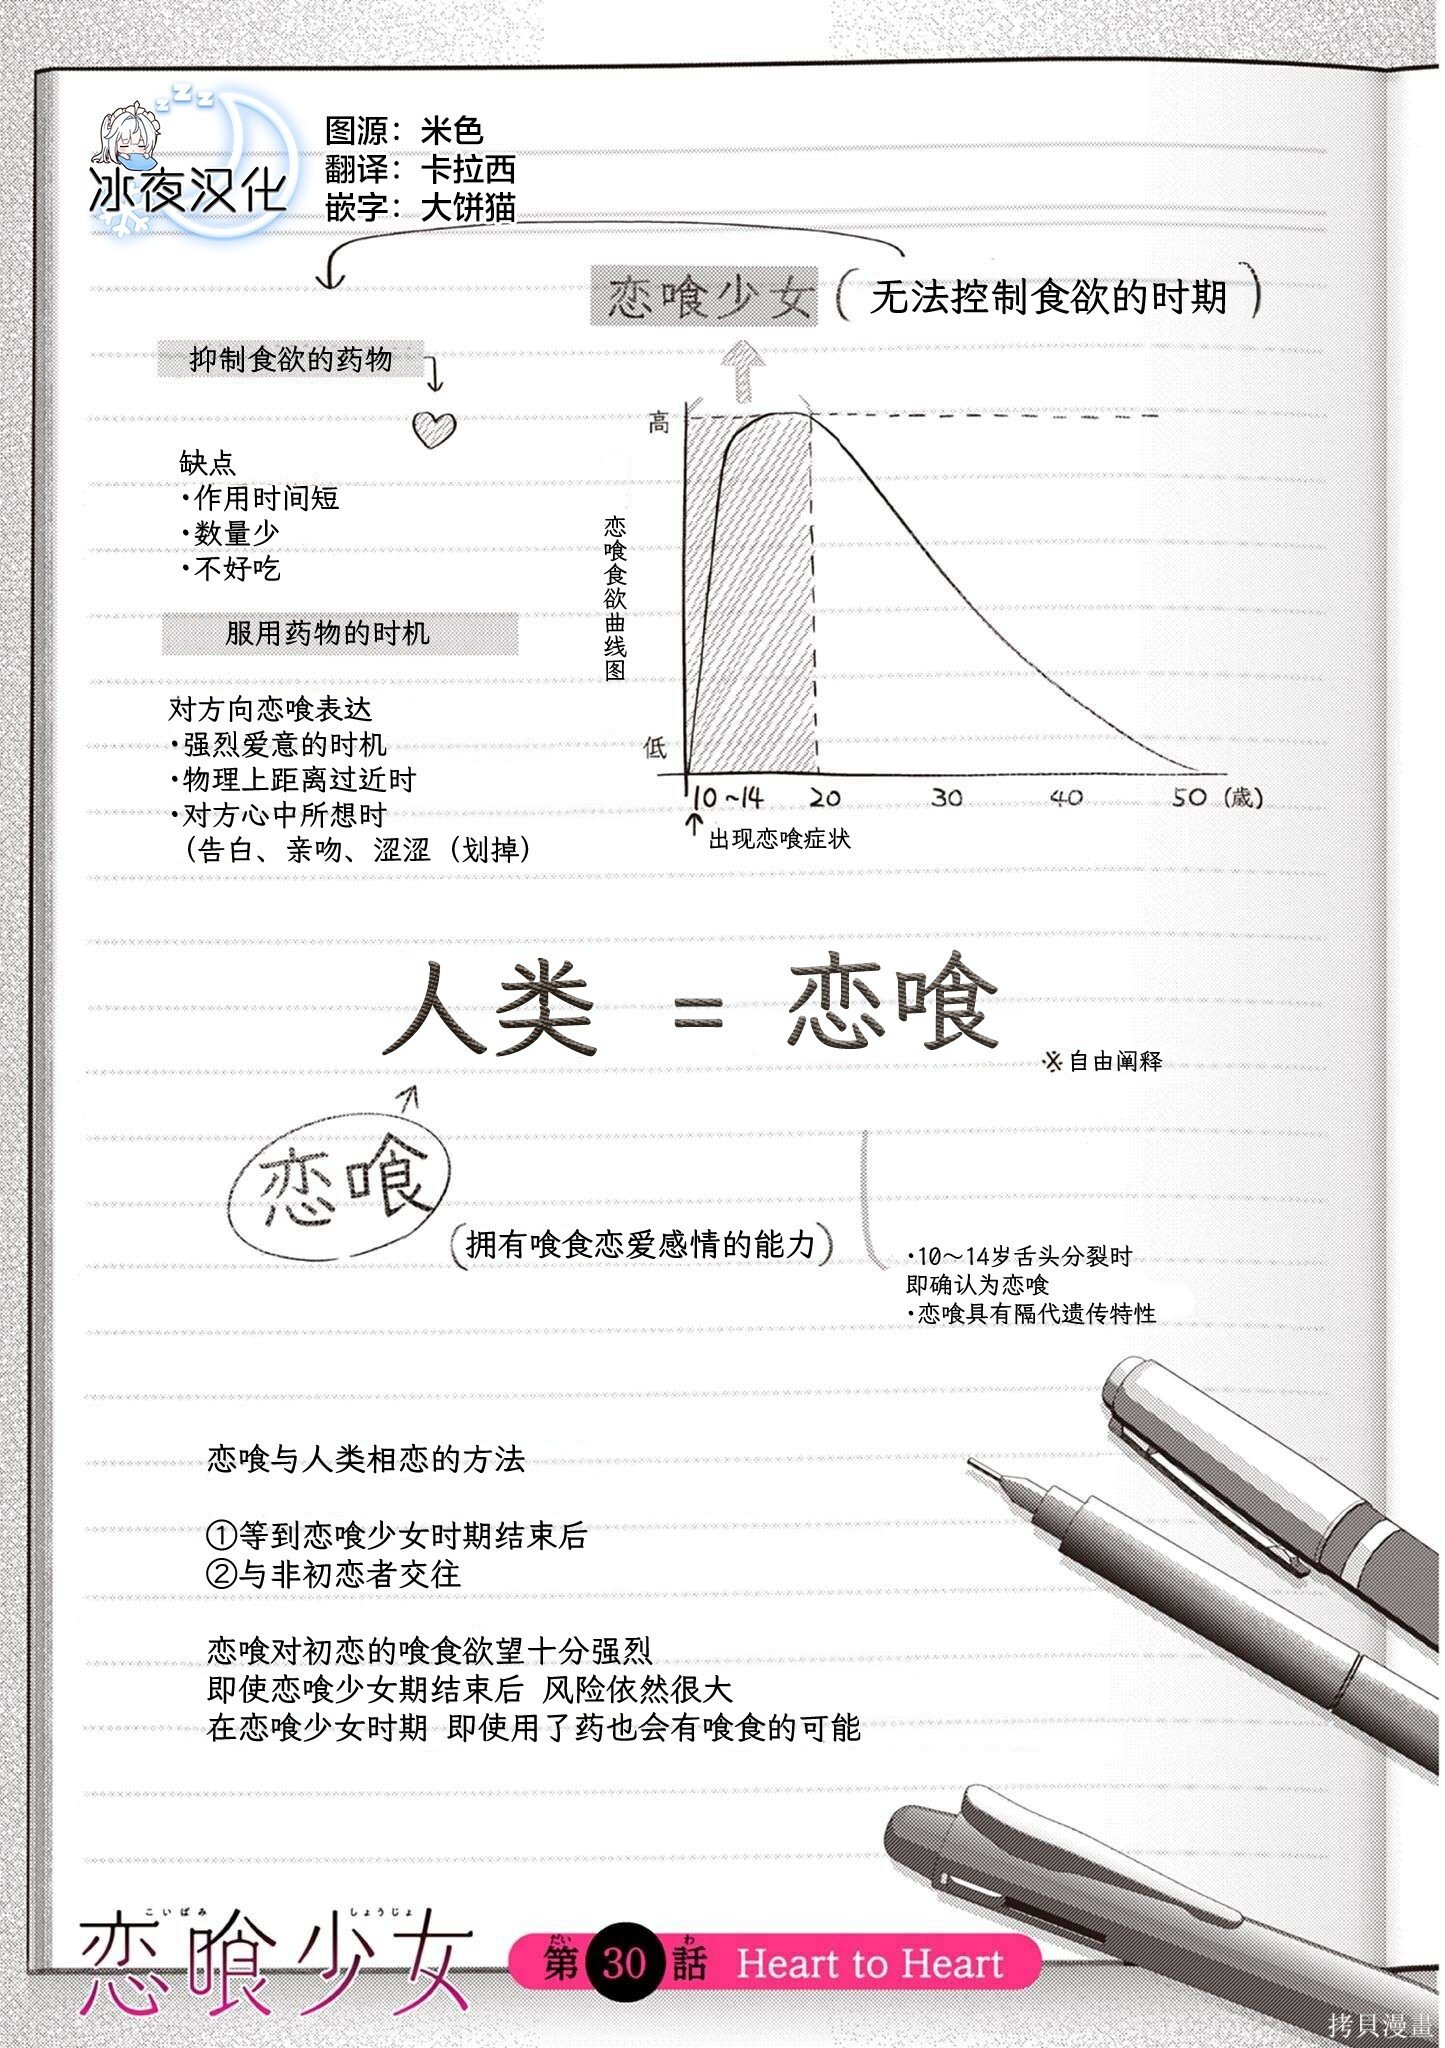 冰夜汉化
图源：米色
翻译：卡拉西
嵌字：大饼猫
恋喰少女（无法控制食欲的时期）
抑制食欲的药物
缺点
・作用时间短
・数量少
・不好吃
服用药物的时机
对方向恋喰表达
・强烈爱意的时机
・物理上距离过近时
・对方心中所想时
（告白、亲吻、涩涩（划掉）
高
恋喰食欲曲线图
低
10~14 20 30 40 50（歳）
出现恋喰症状
人类 = 恋喰
※自由阐释
恋喰
（拥有喰食恋爱感情的能力）
・10～14岁舌头分裂时
即确认为恋喰
・恋喰具有隔代遗传特性
恋喰与人类相恋的方法
①等到恋喰少女时期结束后
②与非初恋者交往
恋喰对初恋的喰食欲望十分强烈
即使恋喰少女期结束后 风险依然很大
在恋喰少女时期 即使用了药也会有喰食的可能
こいばみ しょうじょ
恋喰少女
だい わ
第30話 Heart to Heart
拷貝漫畫